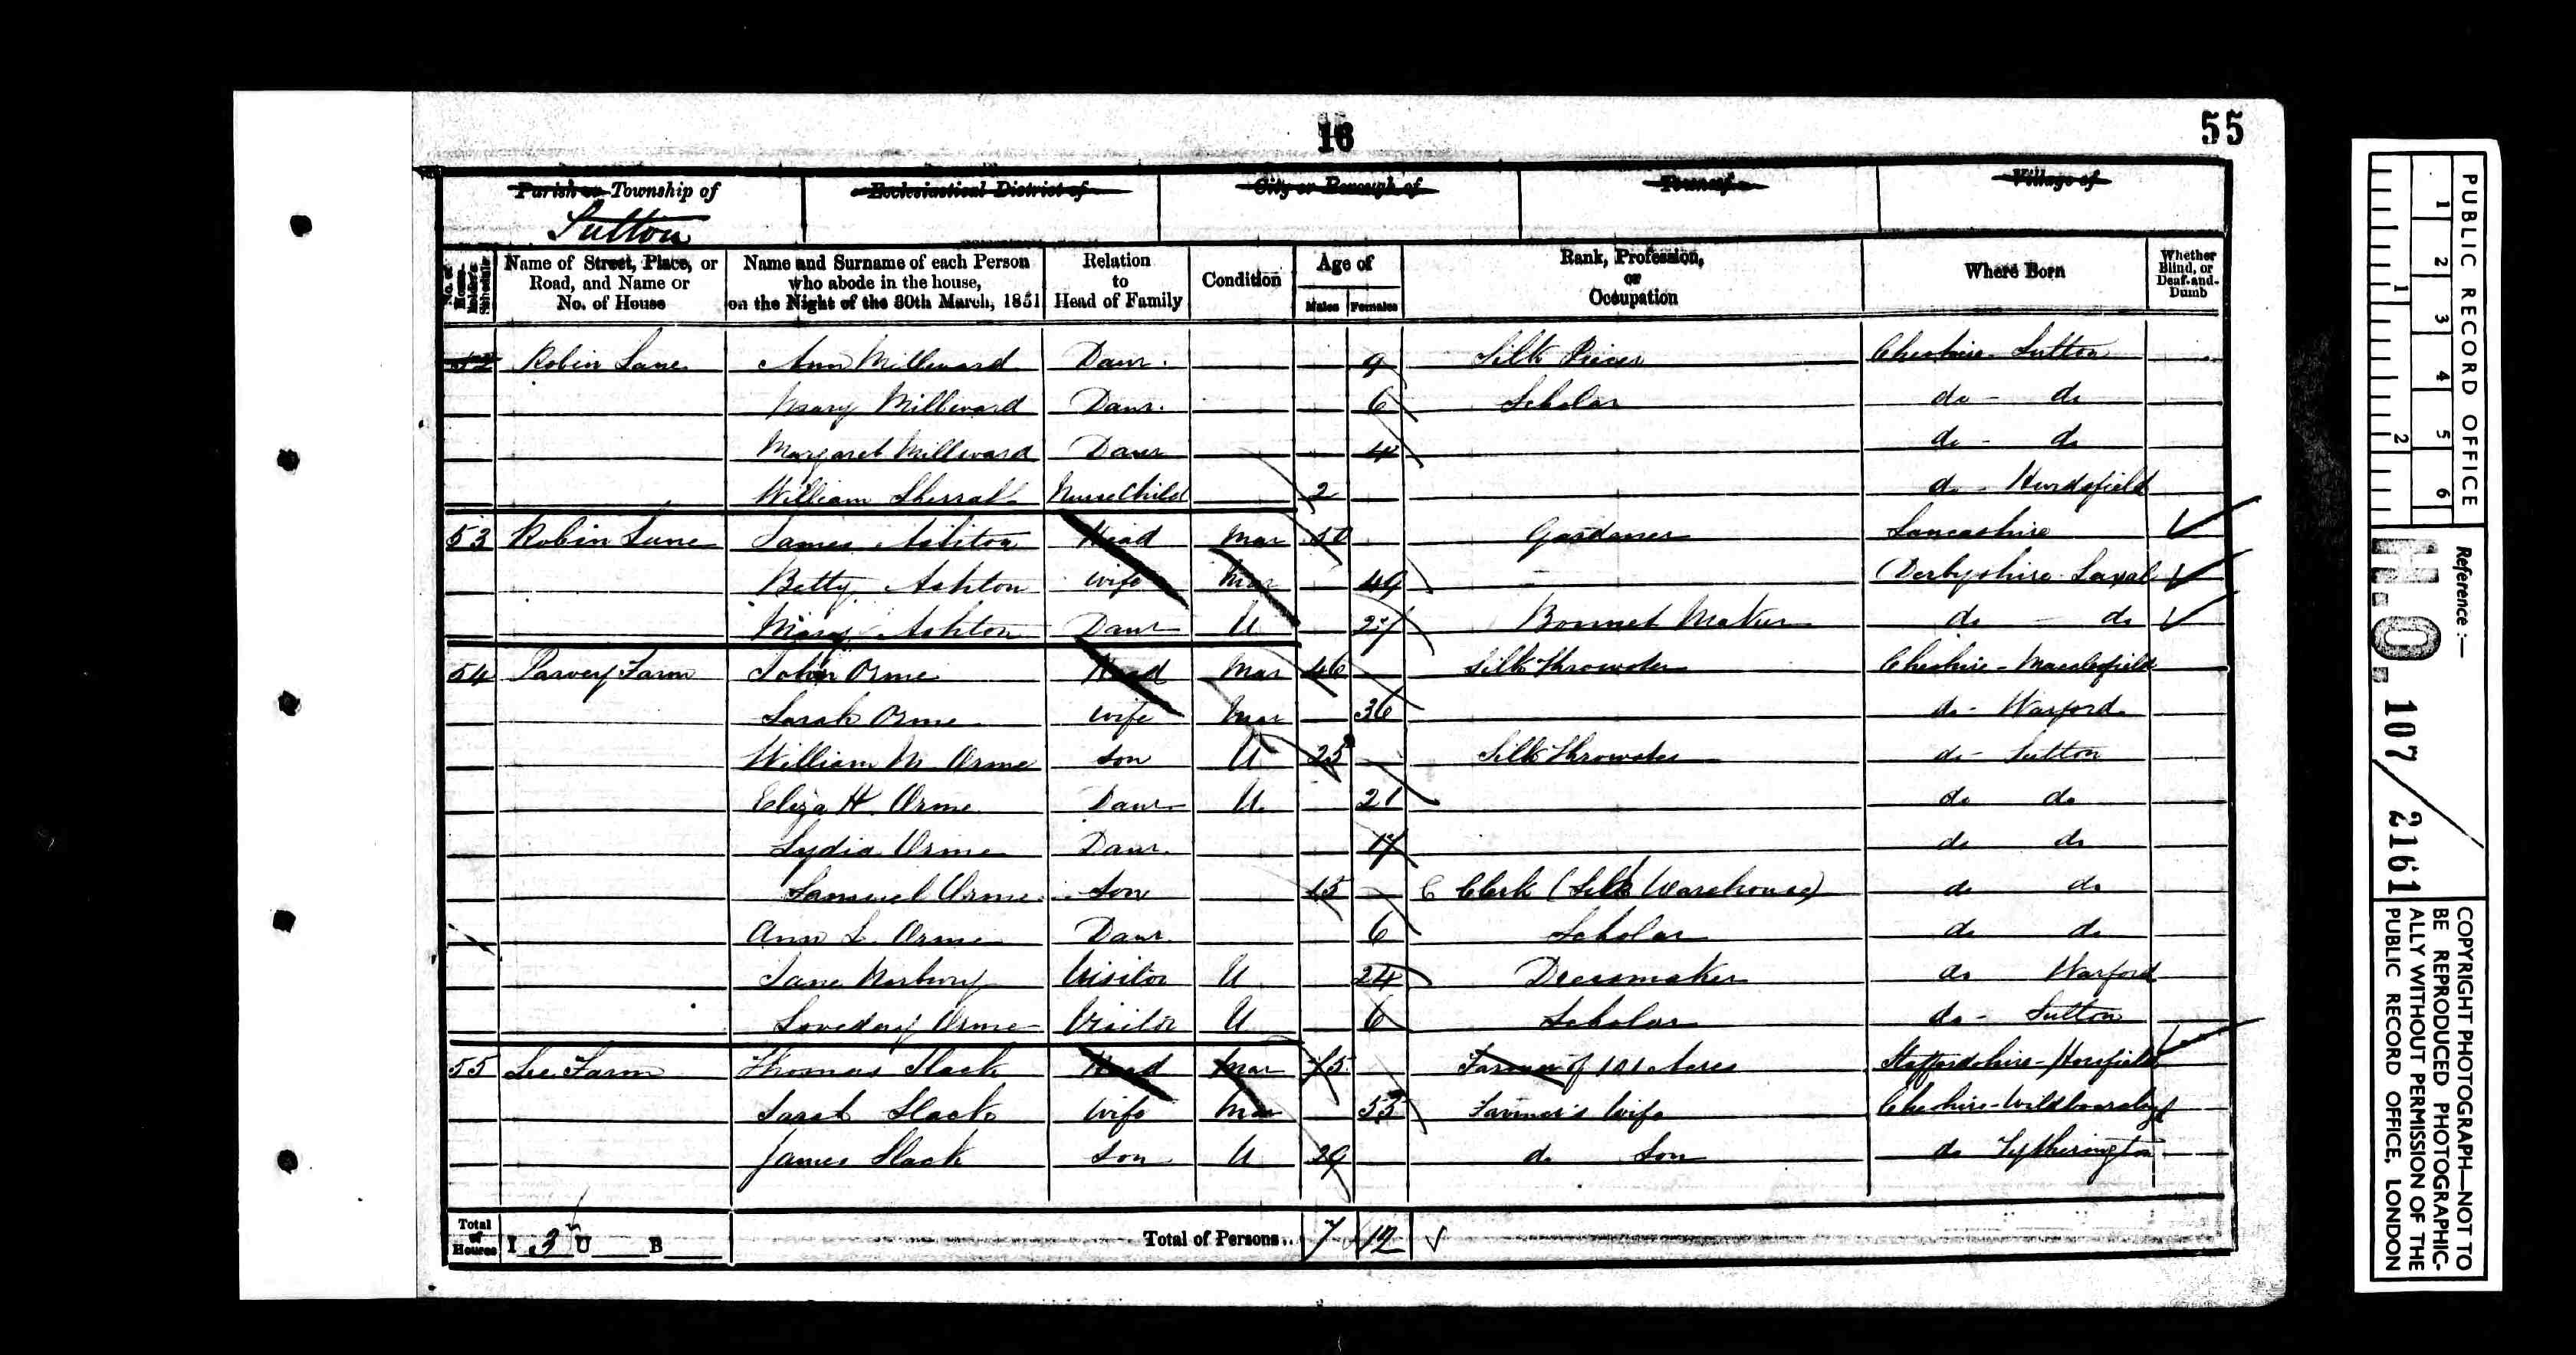 16
55
Parish or Township of
Ecclesiastical District of
City or Borough of
Town of
Village of
Sutton
No. of House-holder's Schedule
Name of Street, Place, or Road, and Name or No. of House
Name and Surname of each Person who abode in the house, on the Night of the 30th March, 1851
Relation to Head of Family
Condition
Age of
Males Females
Rank, Profession, or Occupation
Where Born
Whether Blind, or Deaf-and-Dumb
52 Robin Lane Ann Millward Daur. 9 Silk Piecer Cheshire Sutton
Mary Millward Daur. 6 Scholar do - do
Margaret Millward Daur 4 do - do
William Sherratt Nurse Child 2 do - Hurdsfield
53 Robin Lane James Ashton Head Mar 50 Gardener Lancashire
Betty Ashton Wife Mar 49 Derbyshire
Mary Ashton Daur U 27 Bonnet Maker do - do
54 Parvey Farm John Orme Head Mar 46 Silk Throwster Cheshire - Macclesfield
Sarah Orme Wife Mar 36 do - Warford
William M. Orme Son U 25 Silk Throwster do - Sutton
Eliza H. Orme Daur U. 21 do do
Lydia Orme Daur. 17 do do
Samuel Orme Son 15 Clerk (Silk Warehouse) do do
Ann L. Orme Daur. 6 Scholar do do
Jane Norbury Visitor U 24 Dressmaker do Warford
Loveday Orme Visitor U 6 Scholar do - Sutton
55 Lee Farm Thomas Slack Head Mar 75 Farmer of 101 Acres Staffordshire -
Sarah Slack Wife Mar 53 Farmer's Wife Cheshire - Wildboarclough
James Slack Son U 29 do Son do Tytherington
Total of Houses I 3 U B
Total of Persons.. 7 12
PUBLIC RECORD OFFICE
1 2 3 4 5 6
1 2
Reference :—
H.O. 107/2161
COPYRIGHT PHOTOGRAPH—NOT TO
BE REPRODUCED PHOTOGRAPHIC-
ALLY WITHOUT PERMISSION OF THE
PUBLIC RECORD OFFICE, LONDON